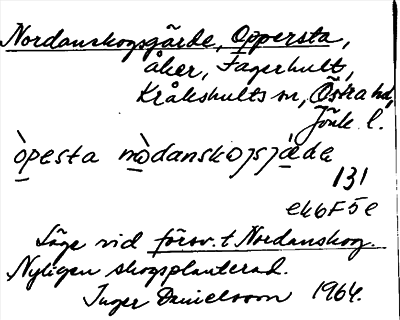 Nordanskogsgärde, Oppersta,
åker, Fagerhult,
Kråkshults sn, Östra hd,
Jönk. l.
òpesta nòdanskogsjàde
131
ek6F5e
Läge vid förov. t Nordanskog.
Nyligen skogsplanterad.
Inger Danielsson 1964.